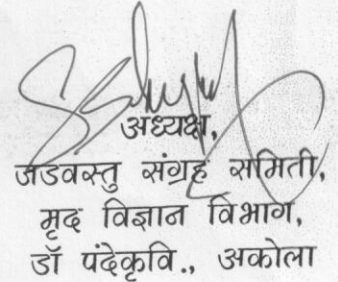 अध्यक्ष,
जडवस्तु संग्रह समिती,
मृद विज्ञान विभाग,
डॉ पंदेकृवि., अकोला